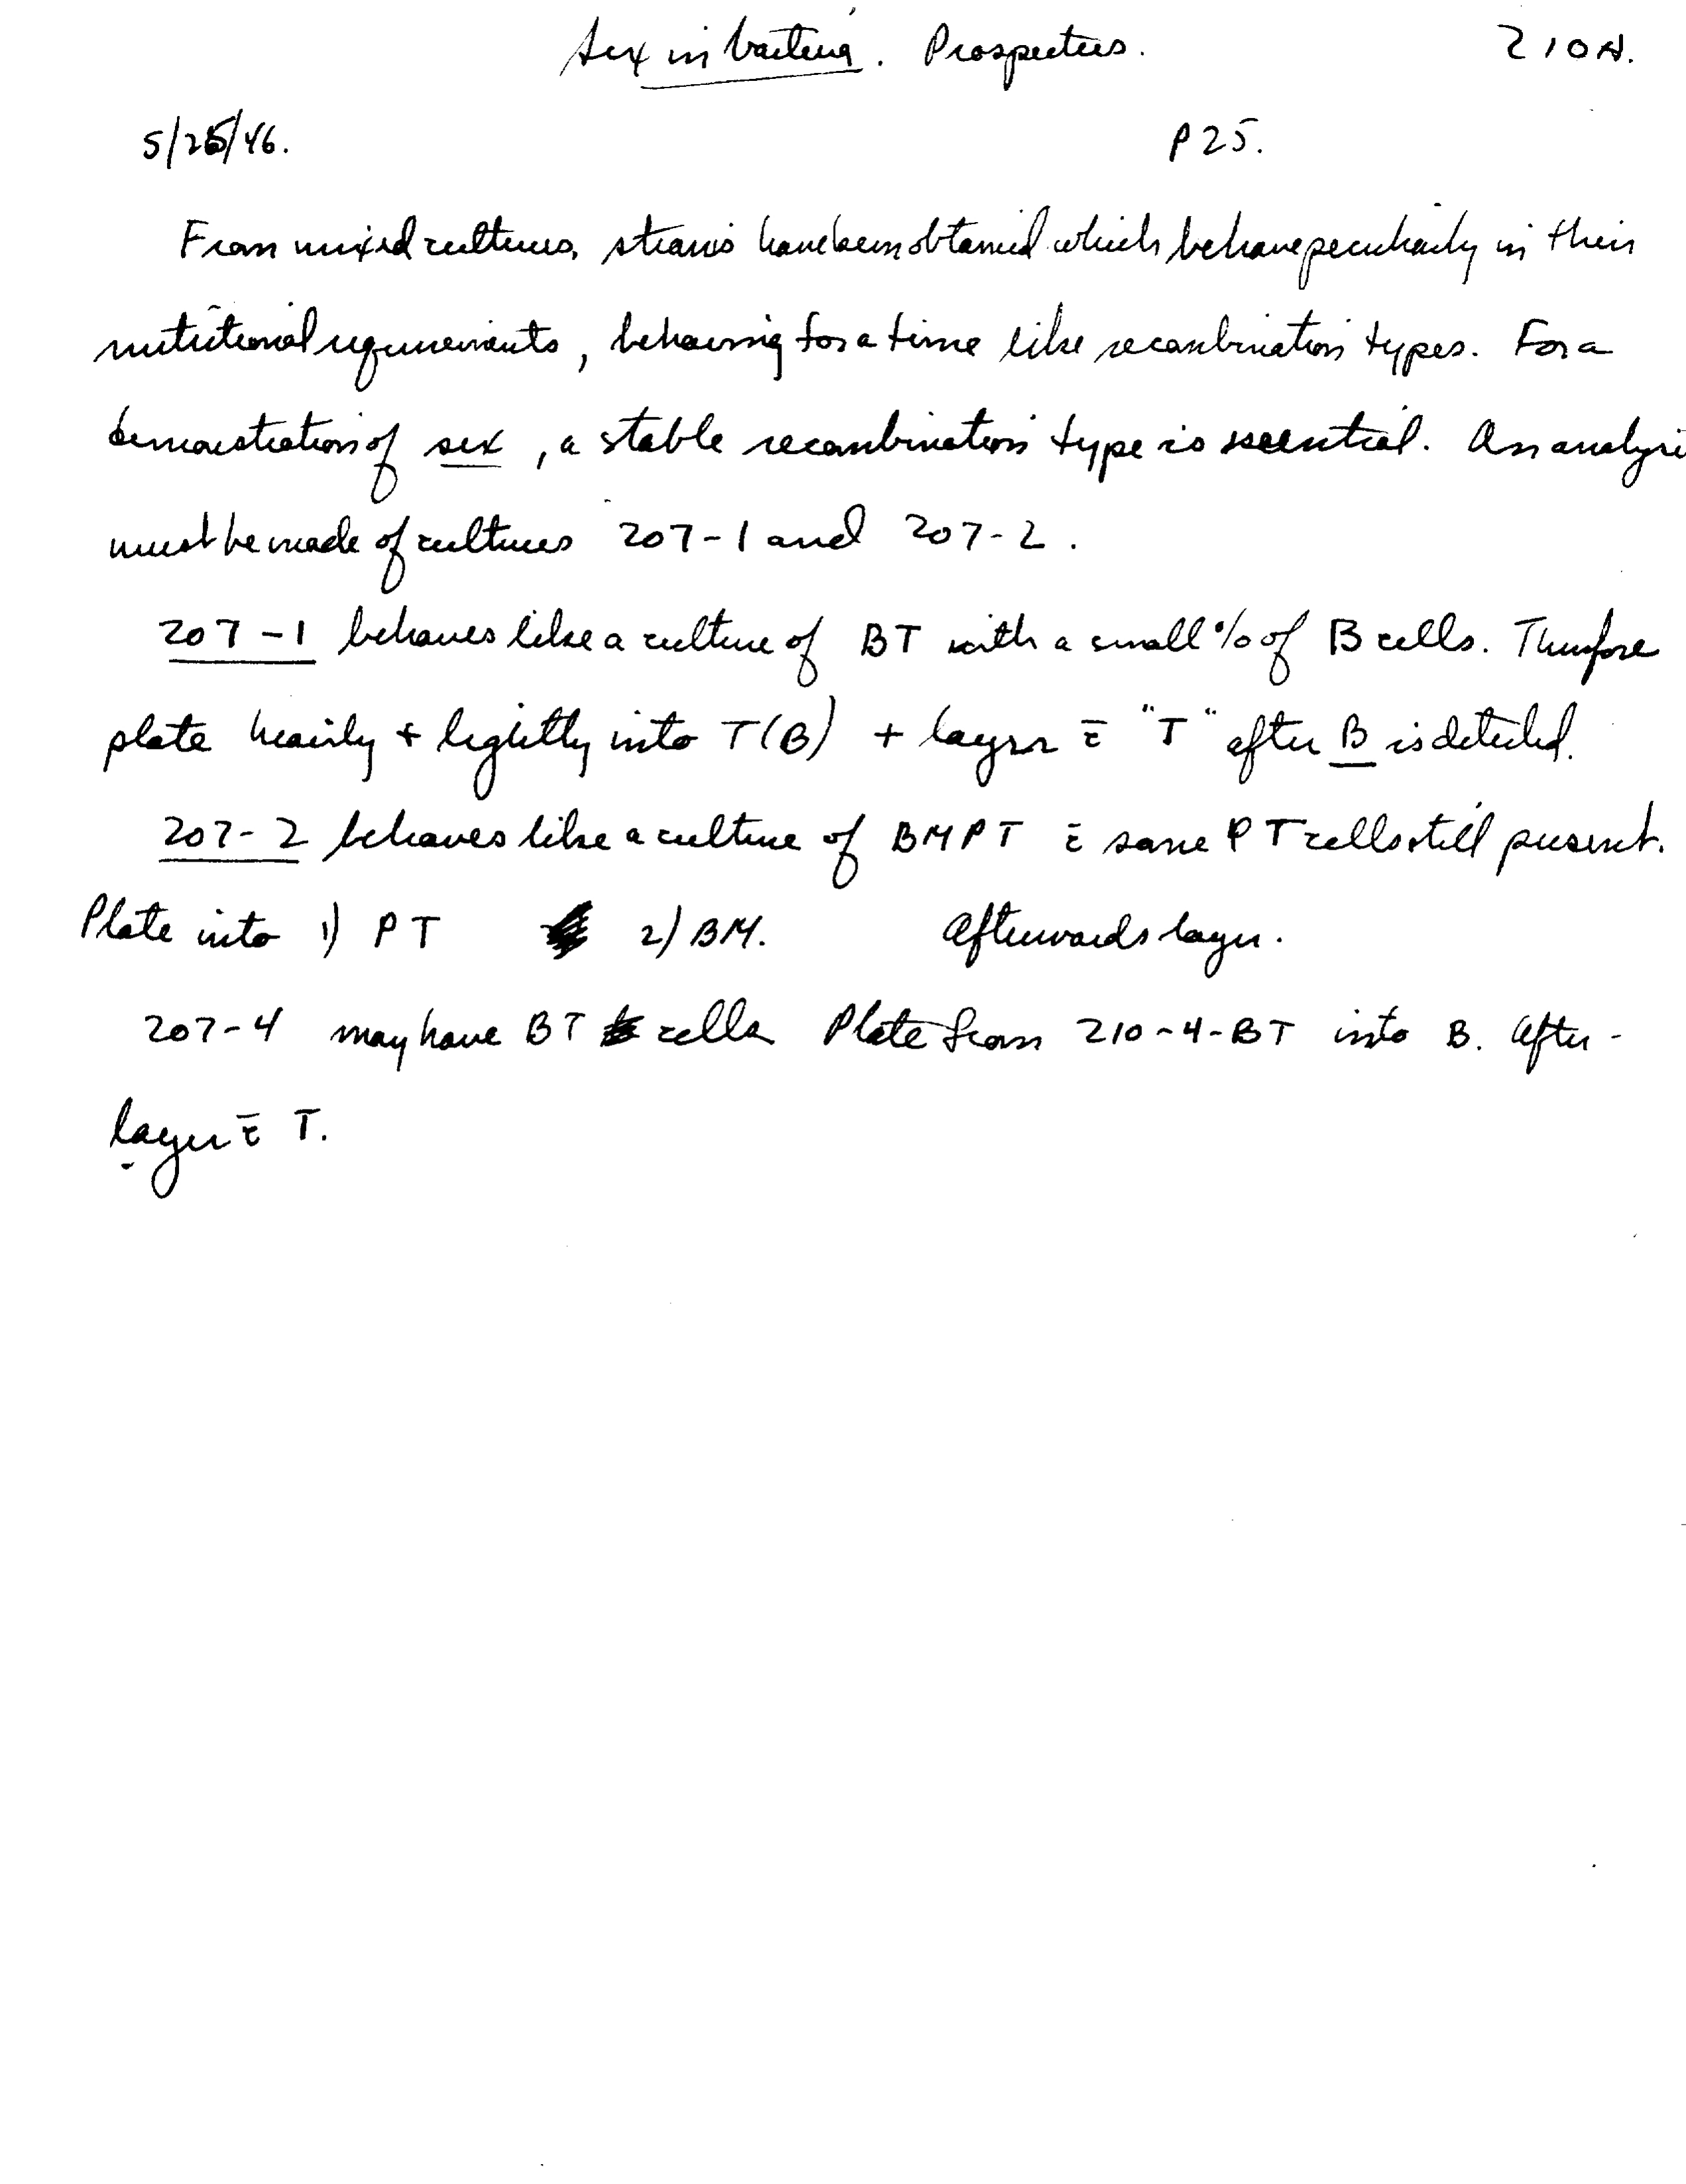 Sex in bacteria. Prospectus. 210A.
5/25/46. P 25.
From mixed cultures, strains have been obtained which behave peculiarly in their
nutritional requirements, behaving for a time like recombination types. For a
demonstration of sex, a stable recombination type is essential. An analysi
must be made of cultures 207-1 and 207-2.
207-1 behaves like a culture of BT with a small % of B cells. Therefore
plate heavily + lightly into T(B) + layer c̄ "T" after B is detected.
207-2 behaves like a culture of BMPT c̄ some PT cells still present.
Plate into 1) PT 2) BM. Afterwards layer.
207-4 may have BT cells Plate from 210-4-BT into B. After-
layer c̄ T.